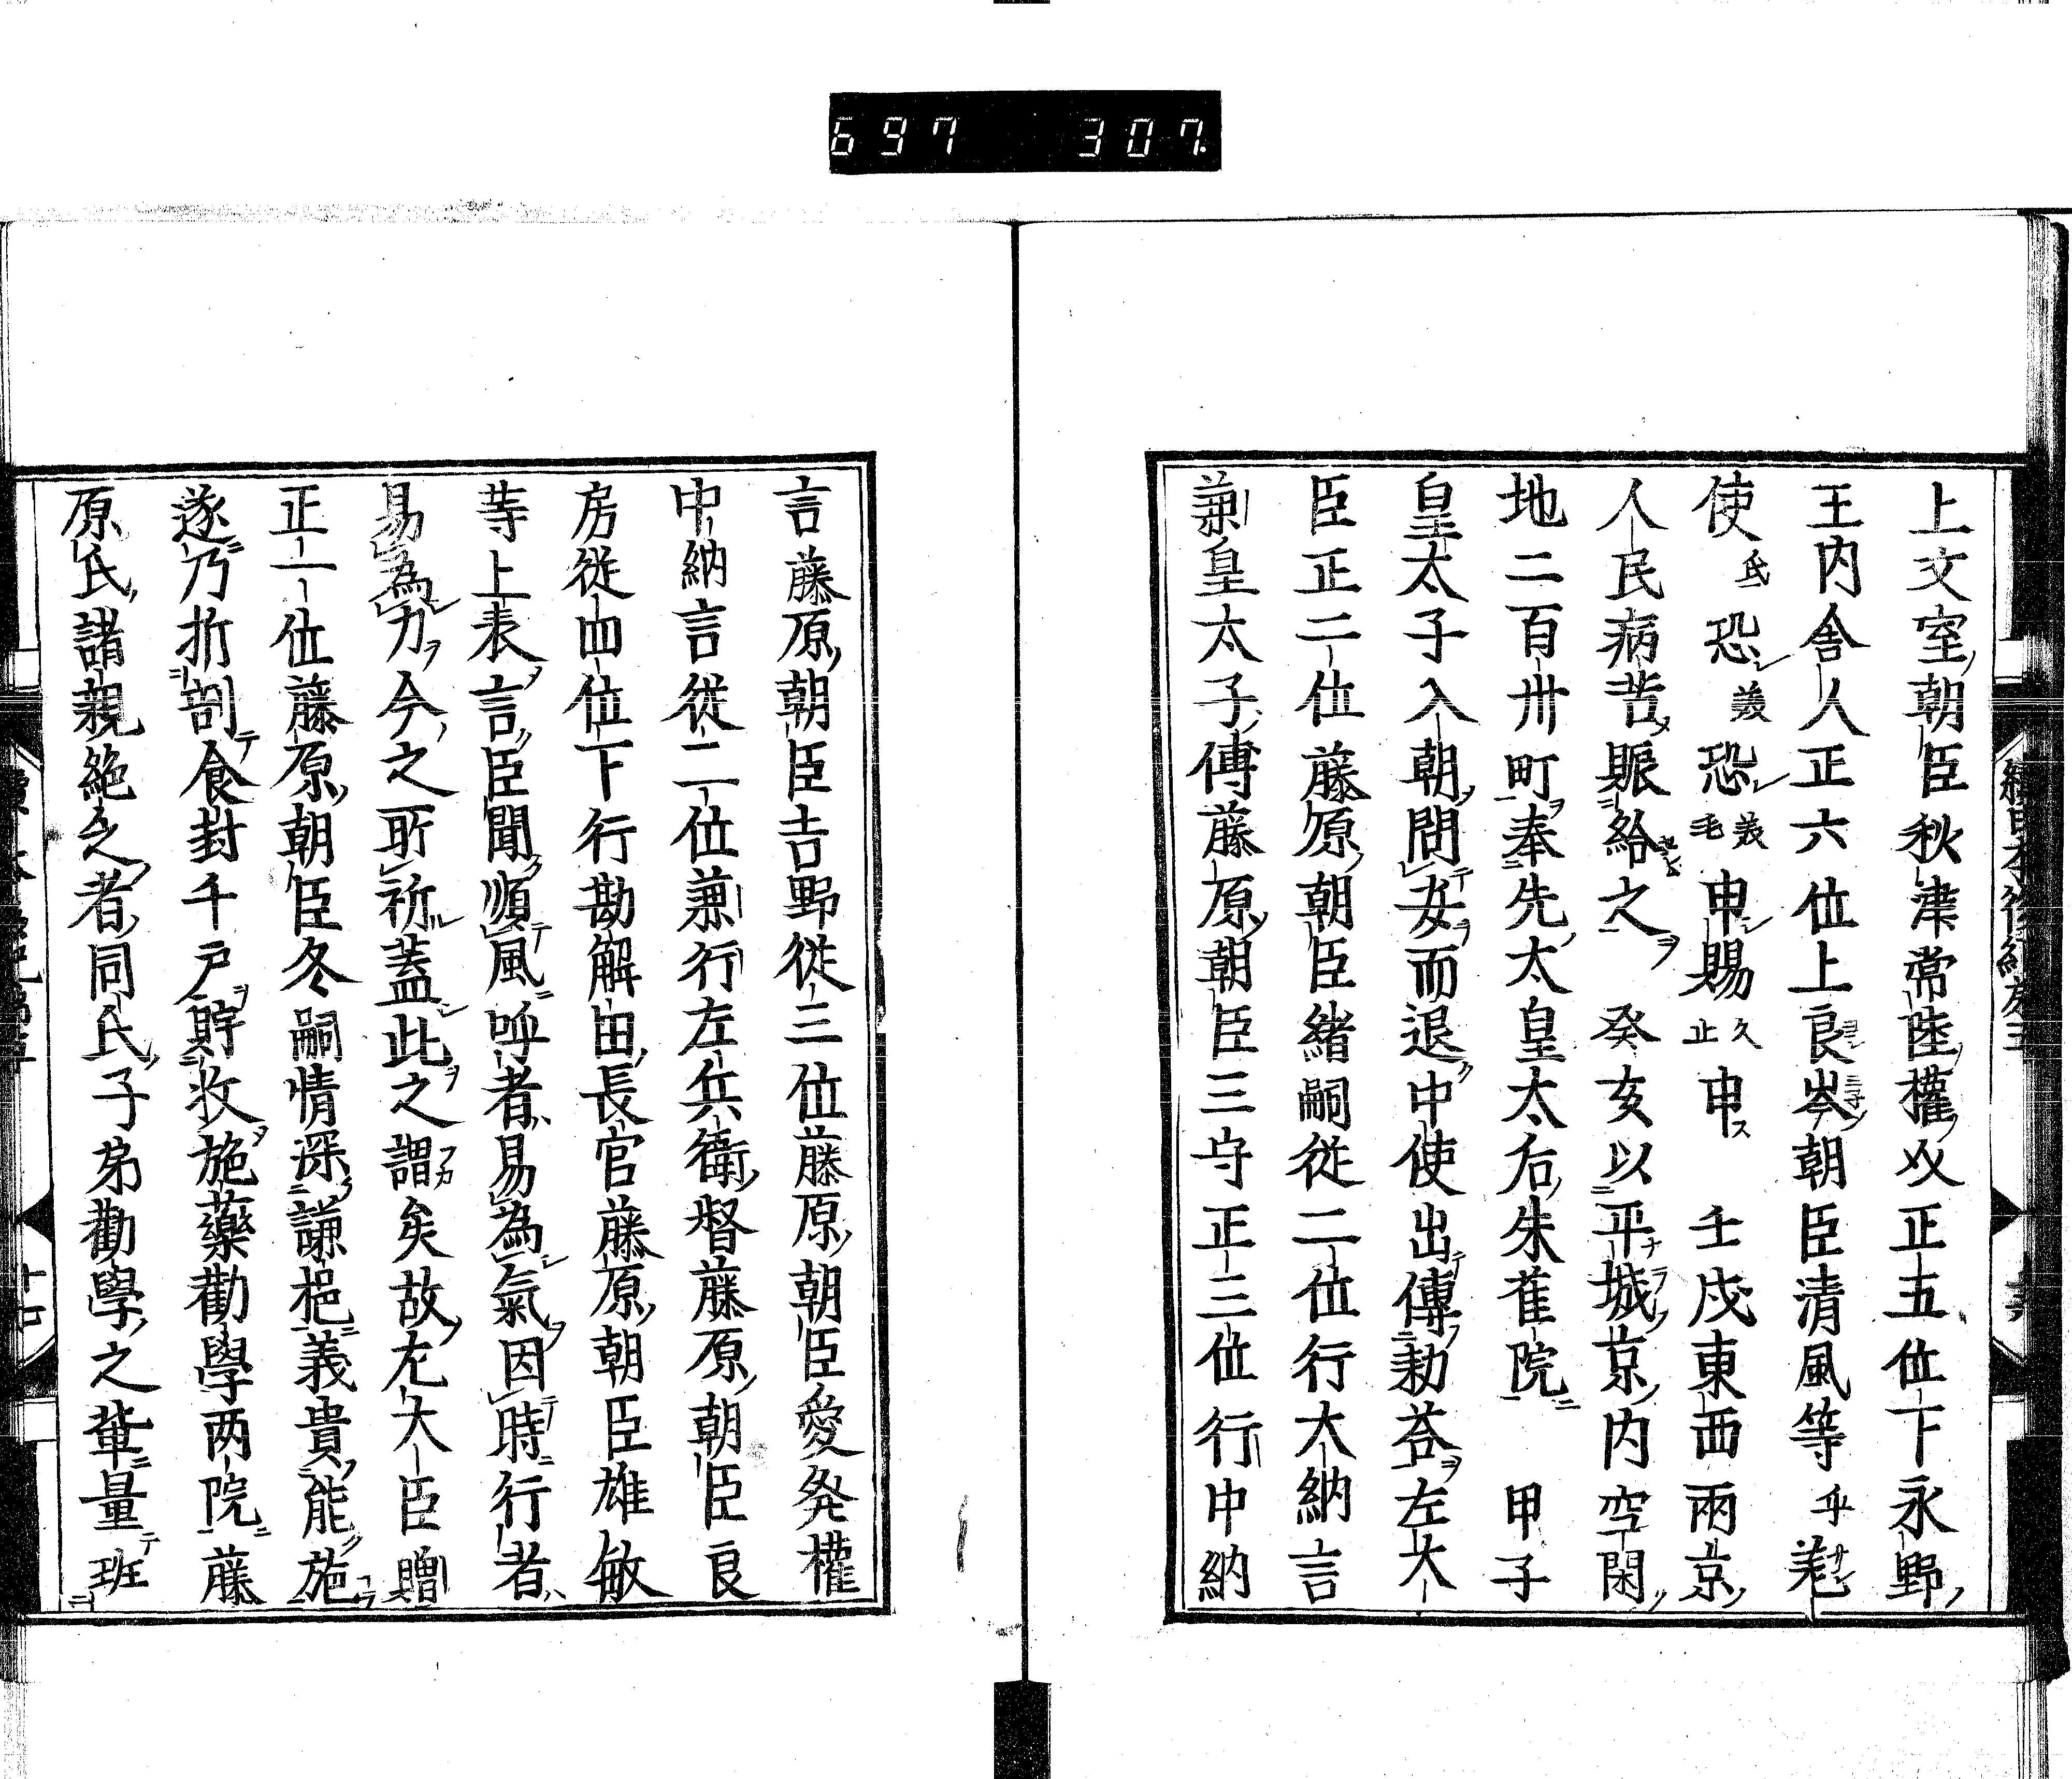 697 307
上文室朝臣秋津常陸權介正五位下永野
王内舍人正六位上良岑朝臣清風等乎差
使氐恐美恐美毛申賜久止申 壬戌東西兩京
人民病苦賑給之 癸亥以平城京内空閑
地二百卅町奉先太皇太后朱雀院 甲子
皇太子入朝問安而退中使出傳勅荅左大
臣正二位藤原朝臣緒嗣從二位行大納言
兼皇太子傅藤原朝臣三守正三位行中納
言藤原朝臣吉野從三位藤原朝臣愛発權
中納言從二位兼行左兵衛督藤原朝臣良
房從四位下行勘解由長官藤原朝臣雄敏
等上表言臣聞順風呼者易為氣因時行者
易為力今之所祈蓋此之謂矣故左大臣贈
正一位藤原朝臣冬嗣情深謙挹義貴能施
遂乃折割食封千戸貯收施藥勸學两院藤
原氏諸親絶之者同氏子弟勸學之輩量班